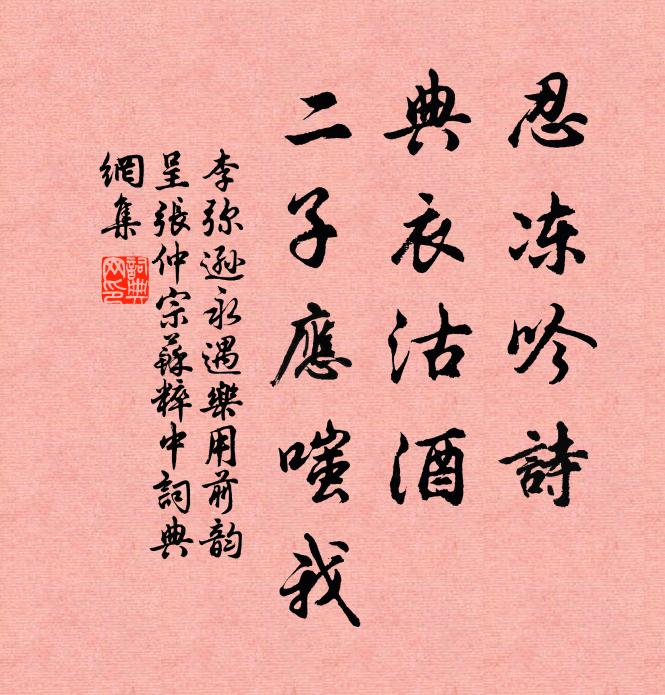 忍冻吟詩
典衣沽酒
二子應嗤我
李弥遜永遇樂用前韵
呈張仲宗蘇粹中詞典
網集
詞典
网印